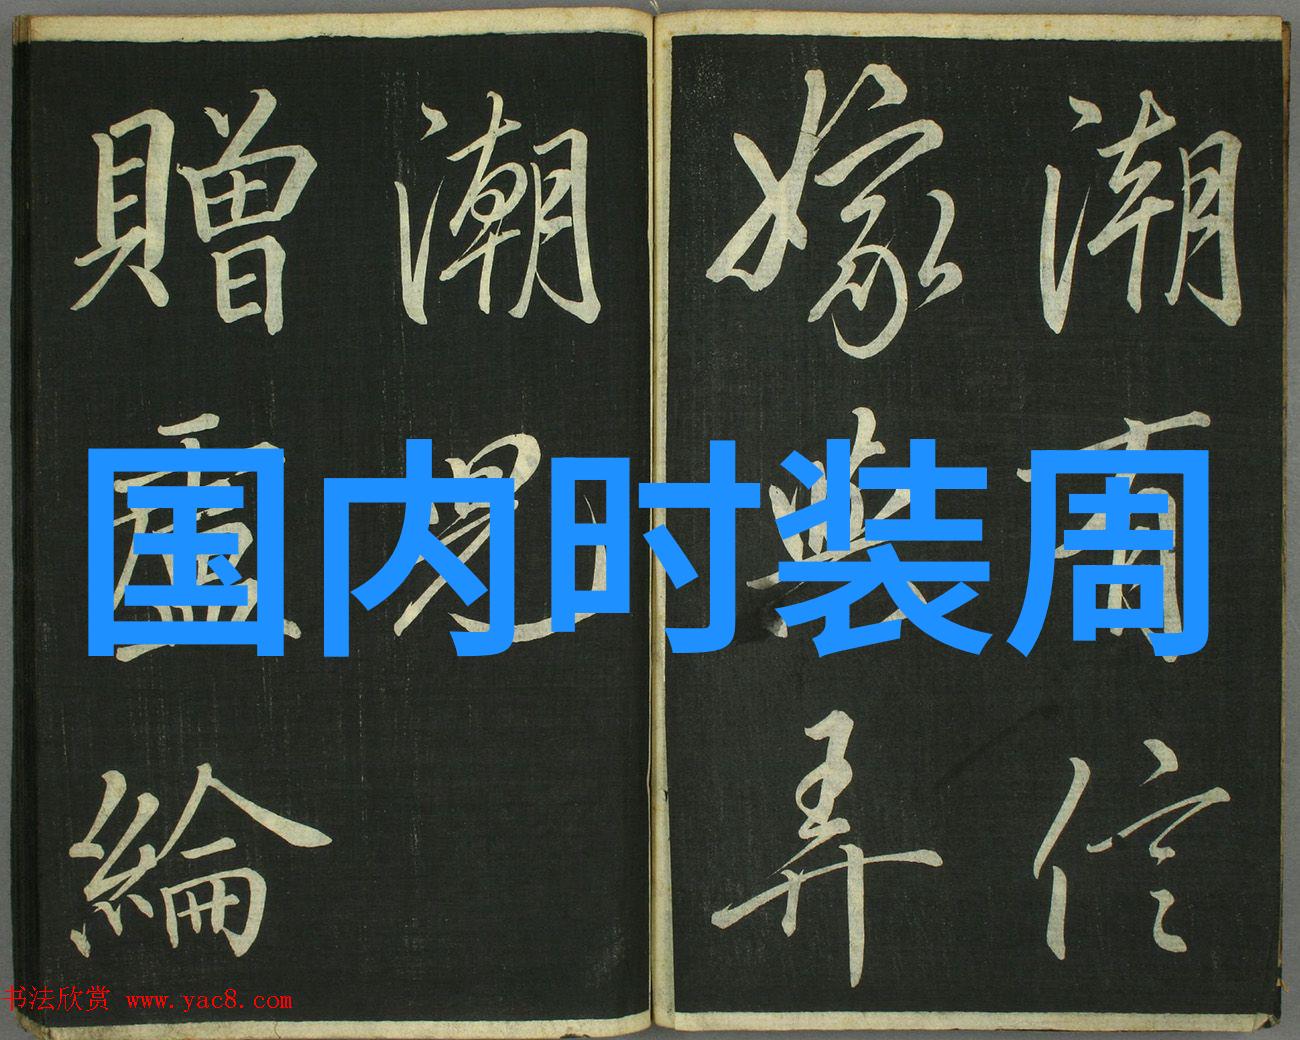 潮有信
嫁與弄
潮兒
贈盧綸
国内时装周
书法欣赏 www.yac8.com